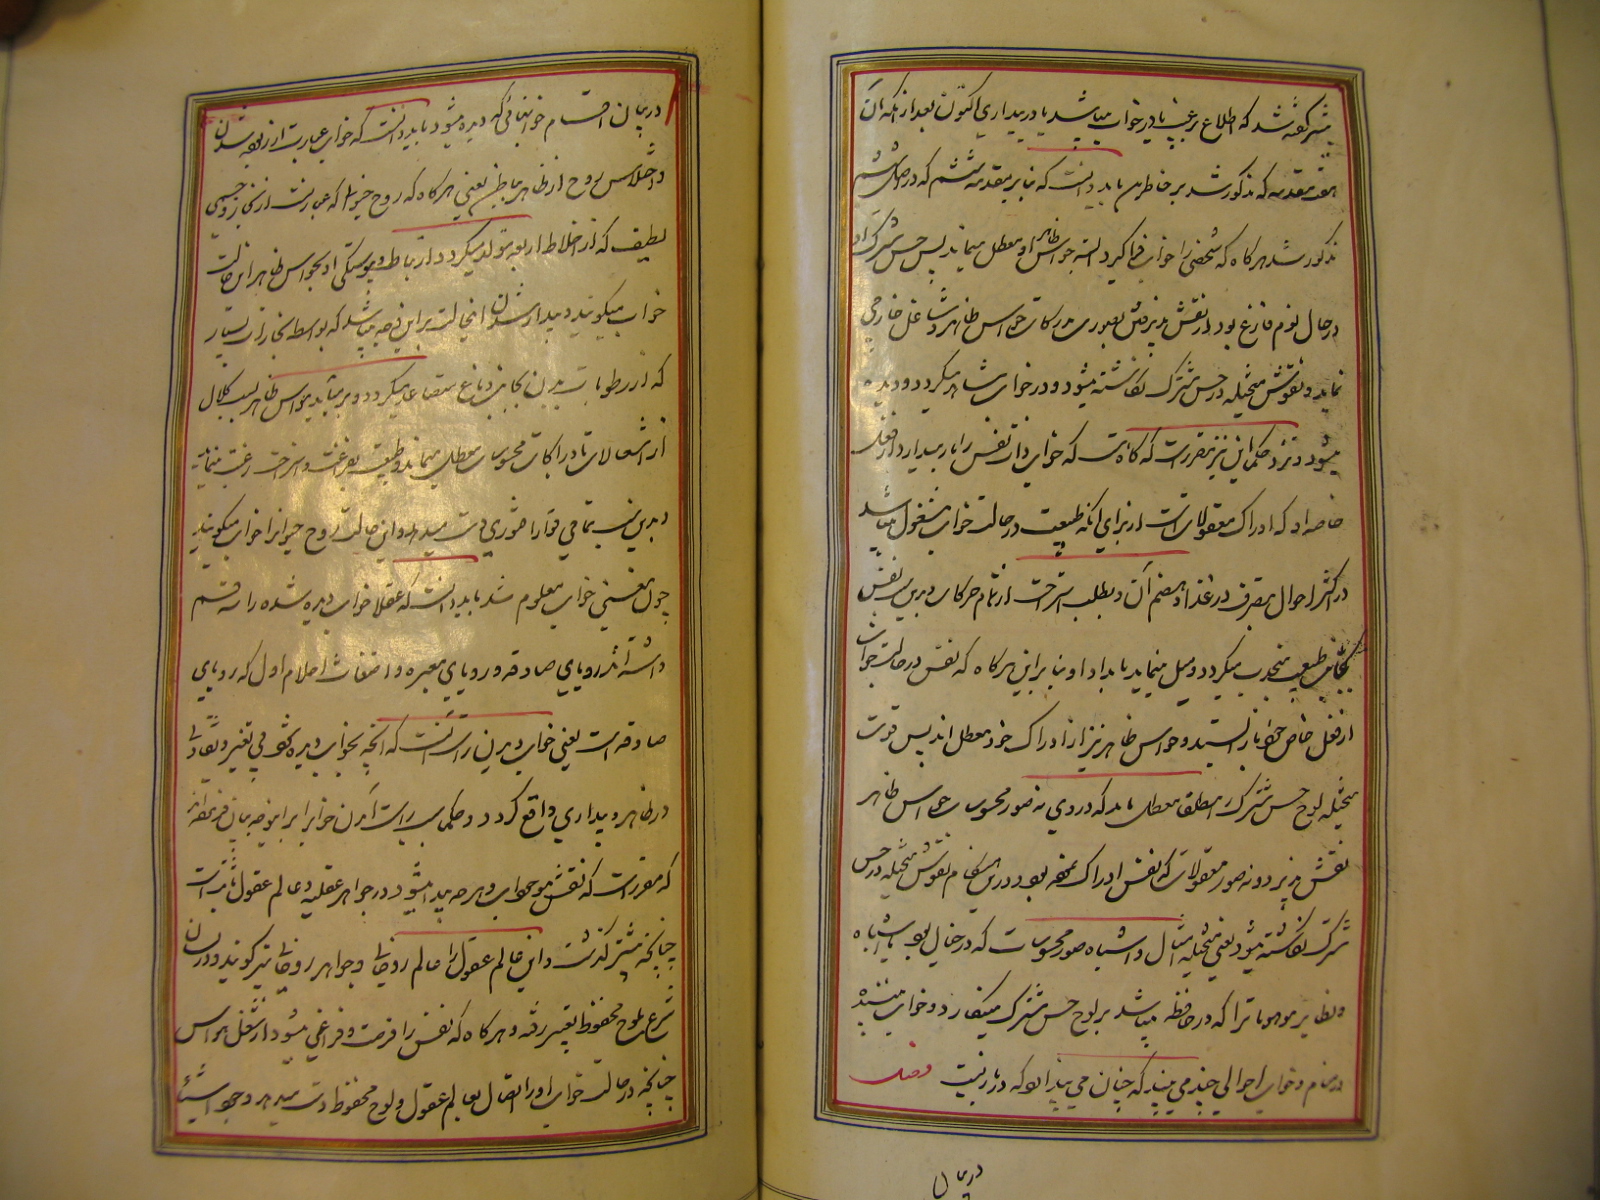 پیشتر گفته شد که اطلاع بر غیب یا در خواب میباشد یا در بیداری اکنون بعد از آنکه آن
هفت مقدمه که مذکور شد بر خاطر باید دانست که بنا بر مقدمه ششم که در اصل ششم
مذکور شد هرگاه که شخصی را خواب فرا گیرد البته حواس ظاهر او معطل میماند پس حس مشترک او
در حال نوم فارغ بود از نقش پذیرفتن بصوری مدرکات حواس ظاهر و شاغل خارجی
نماید و نقوش متخیله در حس مشترک نگاشته میشود و در خواب مشاهده میگردد و دیده
میشود و نزد حکما این نیز مقررست که گاه است که خواب ذات نفس را باز میدارد از فعل
خاصه او که ادراک معقولاتست از برای آنکه طبیعت در حالت خواب مشغول میباشد
در اکثر احوال بتصرف در غذا و هضم آن و بطلب استراحت از تمام حرکات و بدین سبب نفس
بجانب طبیعت منجذب میگردد و میل مینماید بامداد او بنا بر این هرگاه که نفس در حالت خواب
از فعل خاص خود باز ایستد و حواس ظاهر نیز از ادراک خود معطل اند پس قوت
متخیله لوح حس مشترک را مطلق معطل یابد که در وی نه صور محسوسات حواس ظاهر
نقش پذیرد و نه صور معقولات که نفس ادراک نموده بود درین هنگام نقوش متخیله در حس
مشترک نگاشته میشود یعنی متخیله امثال و اشباه صور محسوسات که در خیال بود یا اشباه
و نظایر موهوماترا که در حافظه میباشد بر لوح حس مشترک مینگارد و خواب بیننده
در منام و خواب احوالی چند می بیند که چنان می پندارد که در بیداریست وصل
در بیان
در بیان اقسام خوابهائی که دیده میشود باید دانست که خواب عبارت از ربوده شدن
و اختلاس روح از ظاهر بباطن یعنی هرگاه که روح حیوانی که عبارتست از بخار جسمی
لطیف که از اخلاط اربعه متولد میگردد ارتباط و پیوستگی او بحواس ظاهر این حالت
خواب میگویند و بیدار شدن اینحالت بر این وجه میباشد که بواسطه بخارات بسیار
که از رطوبات بدن بجانب دماغ متصاعد میگردد و بر میآید حواس ظاهر بسبب کلال
از اشتغالات بادراکات محسوسات معطل میماند و طبیعت بفراغت و استراحت رغبت مینماید
و بدین سبب تمامی قوا را فتوری دست میدهد و این حالت روح حیوانرا خواب میگویند
چون معنی خواب معلوم شد باید دانست که عقلا خواب دیده شده را سه قسم
داشته اند رویای صادقه و رویای معبره و اضغاث احلام اول که رویای
صادقه است یعنی خواب دیدن راست آنست که آنچه بخواب دیده شود بی تغییر و تفاوت
در ظاهر و بیداری واقع گردد و حکما سبب راست آمدن خوابرا بر اینوجه بیان فرموده اند
که مقررست که نقش موجودات و هر چه پیدا میشود در جواهر عقلیه و عالم عقول ثابت است
چنانچه پیشتر گذشت و این عالم عقول را عالم روحانی و جواهر روحانی نیز گویند و در لسان
شرع بلوح محفوظ تعبیر رفته و هرگاه که نفس را فرصت و فراغی میشود از شغل حواس
چنانچه در حالت خواب او را اتصال بعالم عقول و لوح محفوظ دست میدهد و چون اشیاء